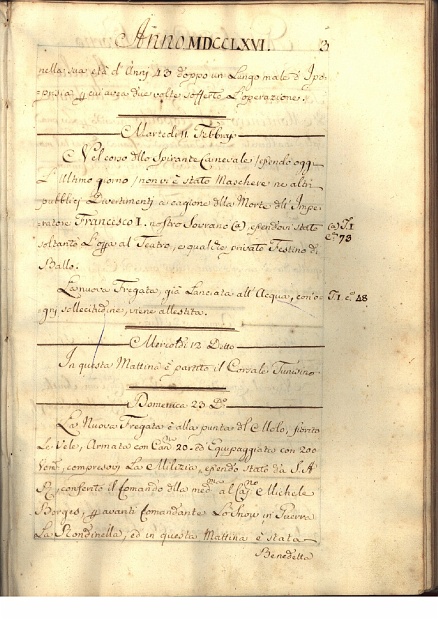 Anno MDCCLXVI. 3
nella sua età d'Anni 43 doppo un Lungo male d'Ipo-
popsia, p cui avea due volte sofferto L'operazione.
Martedi 11 Febbrajo
Nel corso dllo Spirante Carnevale /essendo oggi
L'Ultimo giorno/ non vi è stato Maschere ne altri
pubblici Divertimenti a cagione dlla Morte dll'Impe-
ratore Francesco I. nostro Sovrano (a), essendovi stato (a) T. I
soltanto L'Opera al Teatro, e qualche privato Festino di cte 73
Ballo.
La nuova Fregata, già Lanciata all'Acqua, con o- T. I. cte 48
gni sollecitudine, viene allestita.
Mercoldi 12 Detto
In questa Mattina è partito il Corsale Tunisino
Domenica 23 Do
La Nuova Fregata è alla punta dl Molo, fiorito
Le Vele, Armata con Canni 20. ed Equipaggiata con 200
Uomi, compresovi La Milizia, essendo stato da S. A
R. conferito il Comando dlla medma al Capno Michele
Borges, p avanti Comandante Lo Snow in Guerra
La Rondinella, ed in questa Mattina è stata
Benedetta